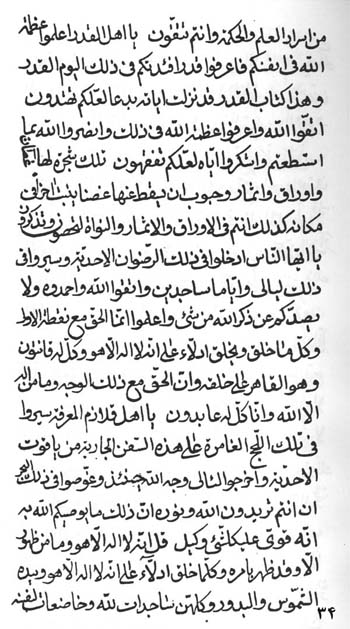 من اسرار العلم والحكمة وانتم تتقون يا اهل القدر اعلموا عظمة
الله في انفسكم فاعرفوا قدر افئدتكم في ذلك اليوم القدر
وهذا كتاب القدر قد نزلت اياته بدعا لعلكم تهتدون
اتقوا الله واعرفوا عظمة الله في ذلك وانصروا الله بما
استطعتم واشكروا اياه لعلكم تفقهون تلك شجرة لها
واوراق واثمار وحبوب ان يقطع عنها غصنا ينبت اخر في
مكانه كذلك انتم في الاوراق والاثمار والنواة لتحصون وتذكرون
يا ايها الناس ادخلوا في ذلك الرضوان الاحدية وسيروا في
ذلك ليالي واياما ساجدين واتقوا الله واحمدوه ولا
يصدكم عن ذكر الله من شئ واعلموا انما الحق مع نقطة الاولى
وكل ما خلق ويخلق ادلاء على انه لا اله الا هو وكل له قانتون
وهو القاهر على خلقه وان الحق مع ذلك الوجه وما من اله
الا الله وانا كل له عابدون يا اهل قلازم المعرفة سيروا
في تلك اللجج الغامرة على هذه السفن الجارية من ياقوت
الاحدية واخرجوا لئالي وجه الله حينئذ وغوصوا في ذلك البحر
ان انتم تريدون الله وبوره ان ذلك ما يوصيكم الله به
انه قوي على كلشئ وكيل قل انه لا اله الا هو وما من ظهور
الا وقد ظهر بامره وكلما خلق ادلاء على انه لا اله الا هو وبيده
الشموس والبدور وكلهن ساجدات لله وخاضعات لنفسه
٣٤